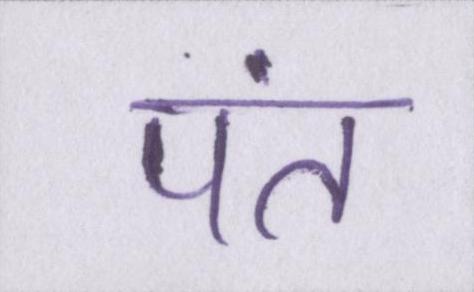 पंत